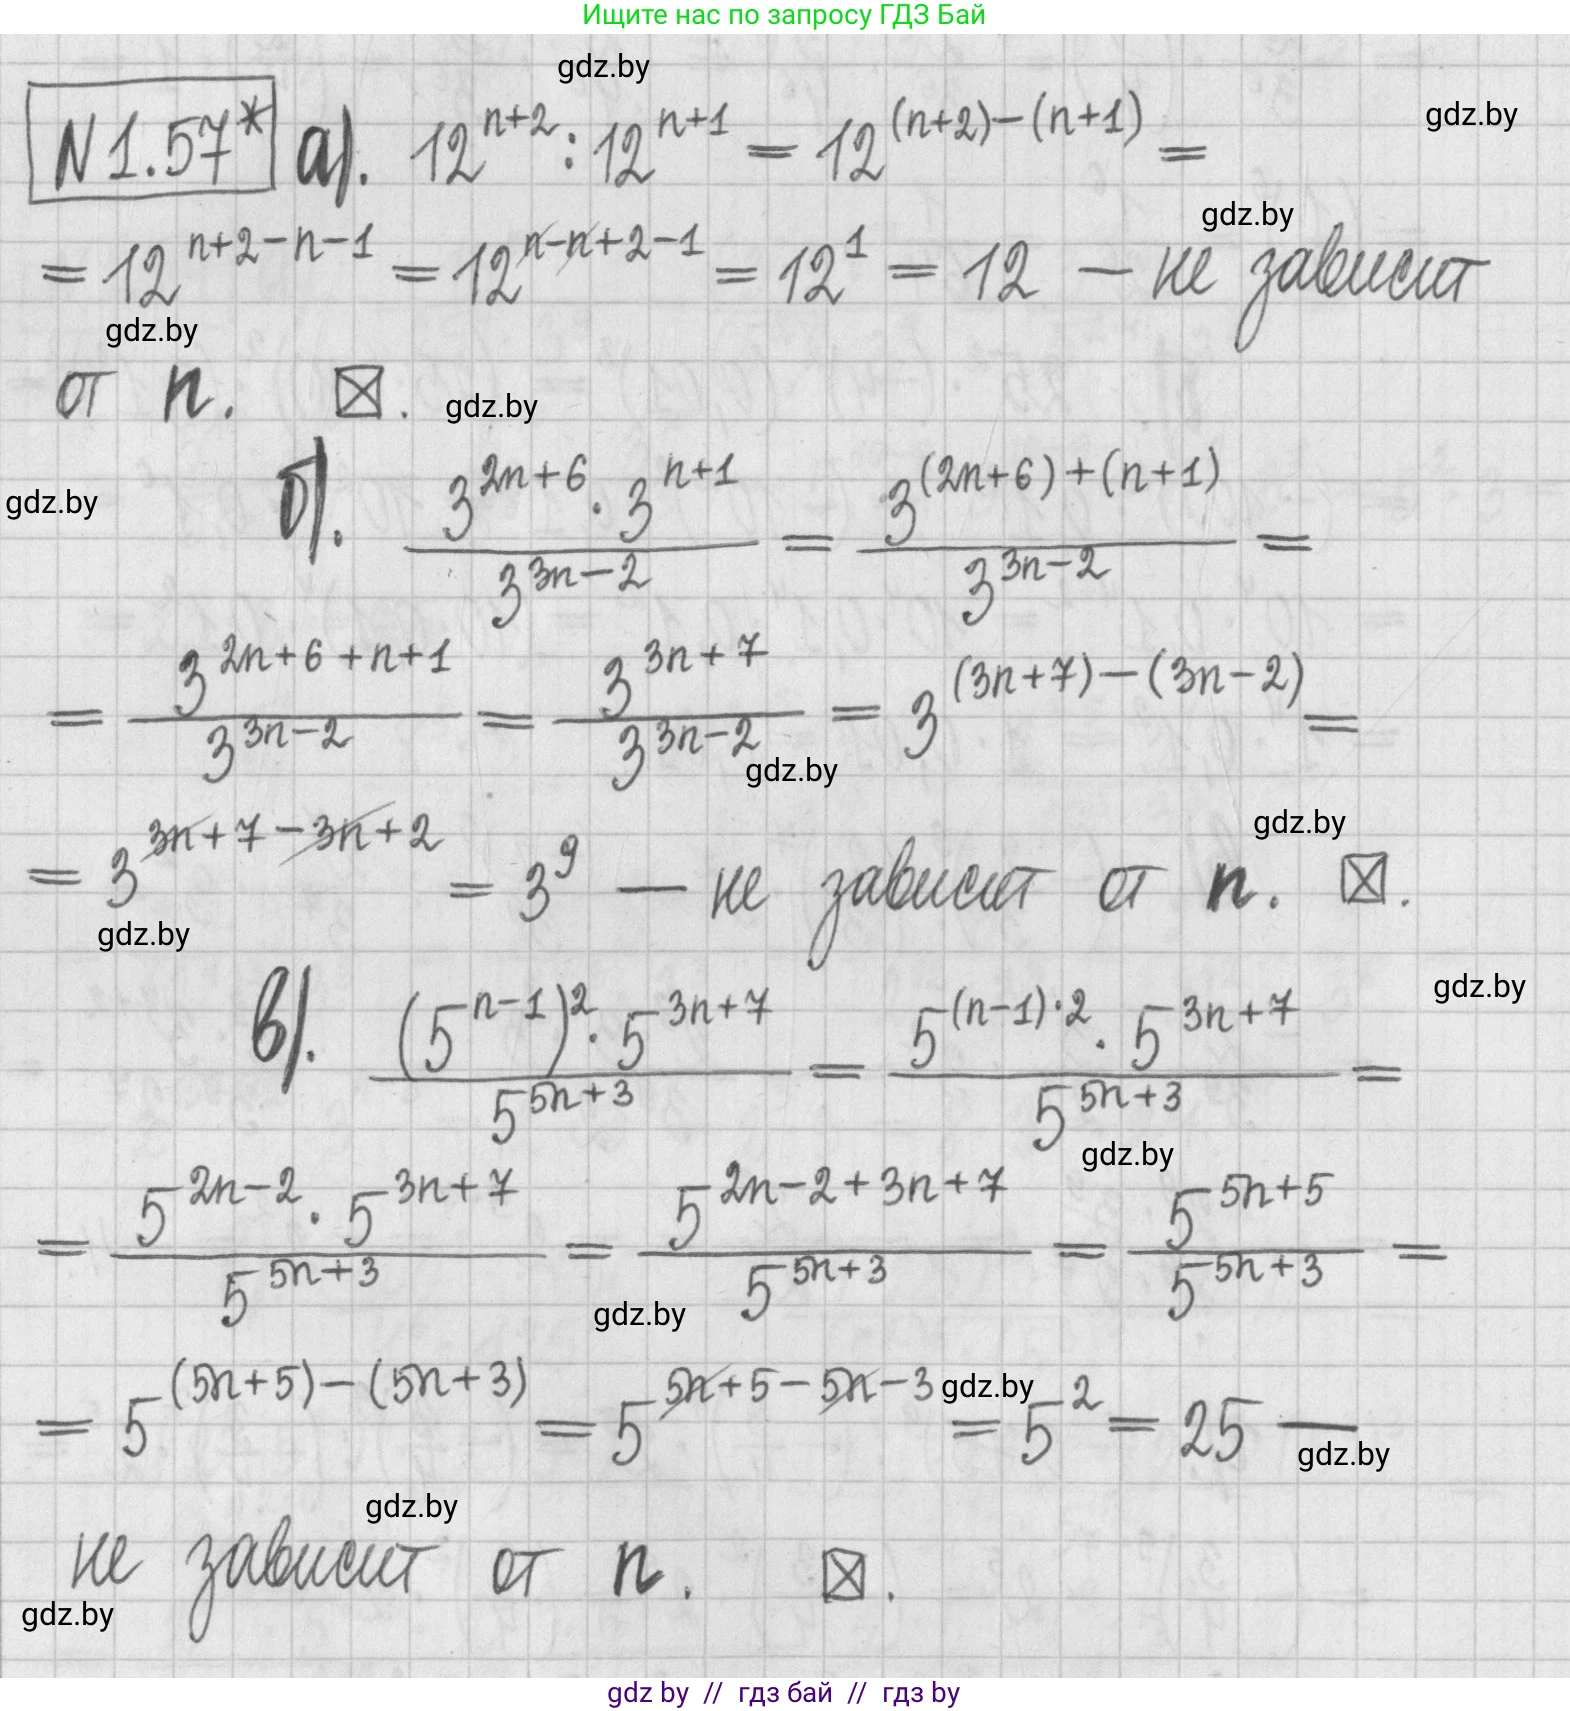 Ищите нас по запросу ГДЗ Бай
gdz.by
gdz.by
N1.57* а). 12^{n+2} : 12^{n+1} = 12^{(n+2)-(n+1)} =
gdz.by
= 12^{n+2-n-1} = 12^{n-n+2-1} = 12^1 = 12 — не зависит
gdz.by
от n. ☒.
gdz.by
gdz.by
б). \frac{3^{2n+6} · 3^{n+1}}{3^{3n-2}} = \frac{3^{(2n+6)+(n+1)}}{3^{3n-2}} =
= \frac{3^{2n+6+n+1}}{3^{3n-2}} = \frac{3^{3n+7}}{3^{3n-2}} = 3^{(3n+7)-(3n-2)} =
gdz.by
gdz.by
= 3^{3n+7-3n+2} = 3^9 — не зависит от n. ☒.
gdz.by
gdz.by
в). \frac{(5^{n-1})^2 · 5^{3n+7}}{5^{5n+3}} = \frac{5^{(n-1)·2} · 5^{3n+7}}{5^{5n+3}} =
gdz.by
= \frac{5^{2n-2} · 5^{3n+7}}{5^{5n+3}} = \frac{5^{2n-2+3n+7}}{5^{5n+3}} = \frac{5^{5n+5}}{5^{5n+3}} =
gdz.by
= 5^{(5n+5)-(5n+3)} = 5^{5n+5-5n-3} = 5^2 = 25 —
gdz.by
gdz.by
gdz.by
не зависит от n. ☒.
gdz.by
gdz by // гдз бай // гдз by